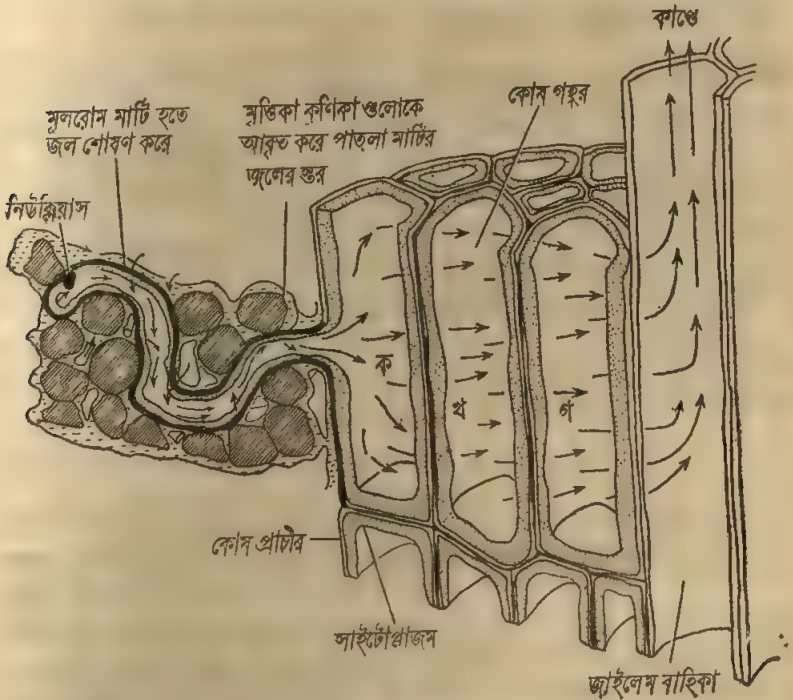 কাণ্ডে
মূলরোম মাটি হতে
জল শোষণ করে
মৃত্তিকা কণিকা গুলোকে
আবৃত করে পাতলা মাটির
জলের স্তর
কোষ গহ্বর
নিউক্লিয়াস
ক
খ
গ
কোষ প্রাচীর
সাইটোপ্লাজম
জাইলেম বাহিকা